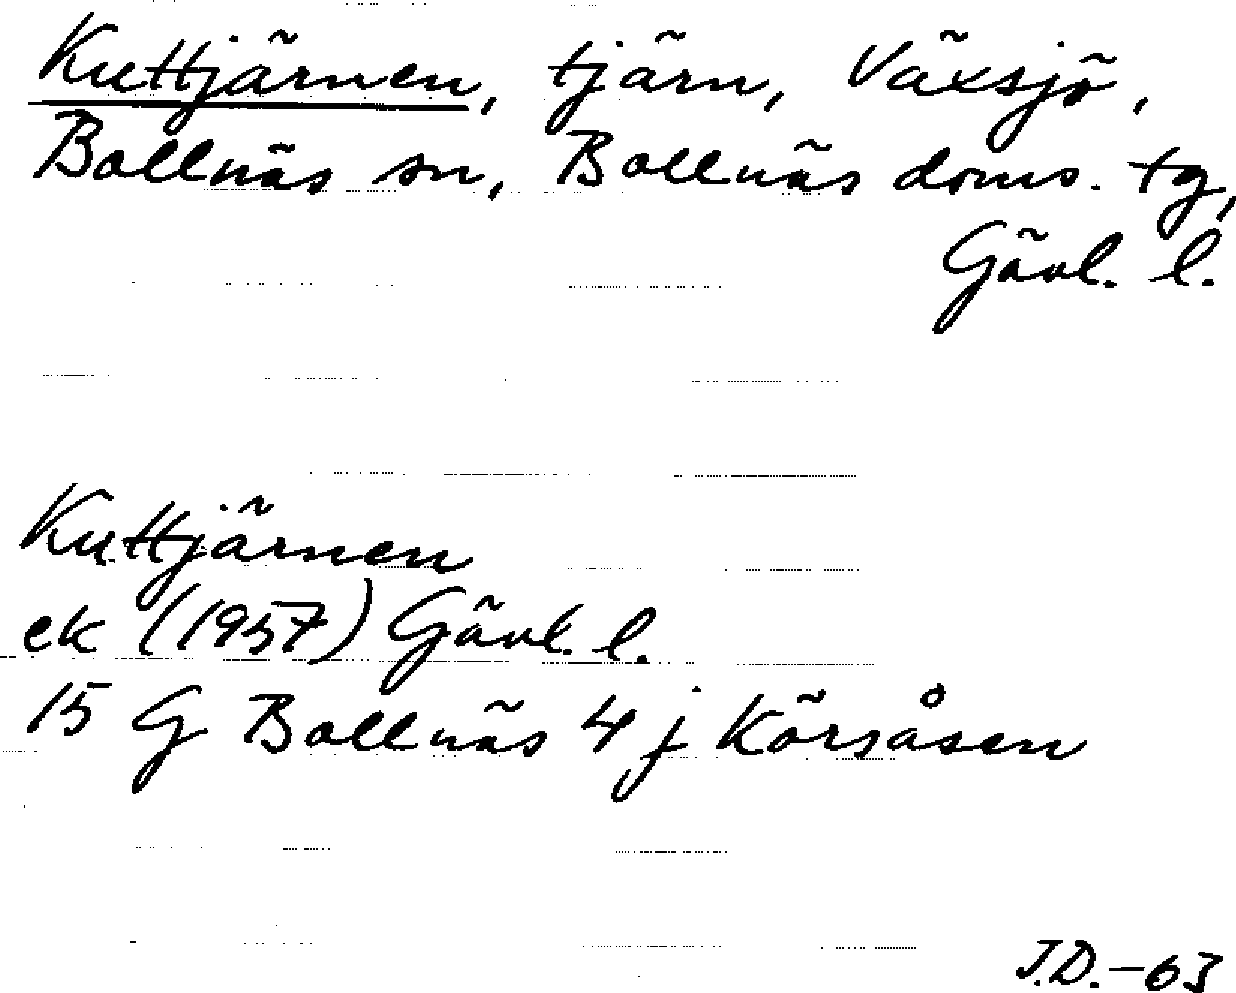 Kuttjärnen, tjärn, Växsjö,
Bollnäs sn, Bollnäs doms. tg,
Gävl. l.
Kuttjärnen
ek (1957) Gävl. l.
15 G Bollnäs 4 j Körsåsen
J.D.-63